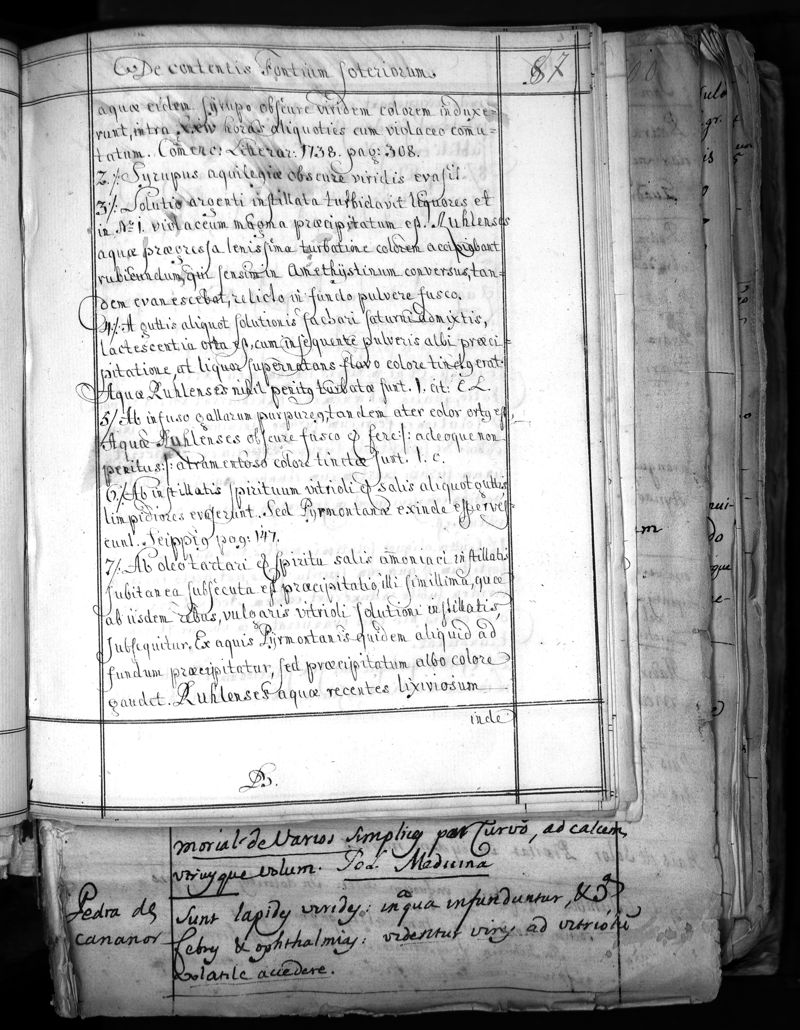 De contentis Fontium Soteriorum. 87
aquæ eidem syrupo obscure viridem colorem induxe=
runt, intra XXIV horas aliquoties cum violaceo comu=
tatum. Com̄erc: Litterar: 1738. pag: 308.
2/. Syrupus aquilegiæ obscure viridis evasit.
3/. Solutio argenti instillata turbidavit liquores et
in No 1. violaceum præcipitatum est. Ruhlenses
aquæ prægressa lenissima turbatione colorem accipiebant
rubicundum, qui sensim in Amethystinum conversus, tan=
dem evanescebat, relicto in fundo pulvere fusco.
4/. A guttis aliquot solutionis sachari saturni admixtis,
lactescentia orta est, cum insequente pulveris albi præci=
pitatione, at liquor supernatans flavo colore tinctg erat.
Aquæ Ruhlenses nihil penitg turbatæ sunt. l. cit: C. L.
5/. Ab infuso gallarum purpureg, tandem ater color ortg est,
Aquæ Ruhlenses obscure fusco & fere /: adeoque non
penitus :/ atramentoso colore tinctæ sunt. l. c.
6/. Ab instillatis spirituum vitrioli & salis aliquot guttis
limpidiores evaserunt. Sed Pyrmontanæ exinde efferves=
cunt. Seippig pag: 147.
7/. Ab oleo tartari & spiritu salis am̄oniaci instillatis
subitanea subsecuta est præcipitatio, illi simillima, quæ
ab iisdem rebus, vulgaris vitrioli solutioni instillatis,
subsequitur. Ex aquis Pyrmontanis quidem aliquid ad
fundum præcipitatur, sed præcipitatum albo colore
gaudet. Ruhlenses aquæ recentes lixiviosum
inde
morial de Varios simplicg por Curvō, ad calcem
utriusque volum. Pol. Medicina
Pedra de
cananor
Sunt lapidg viridg: in qua infunduntur, &
febrg & ophthalmig: videntur virg ad vitriolū
volatile accedere.